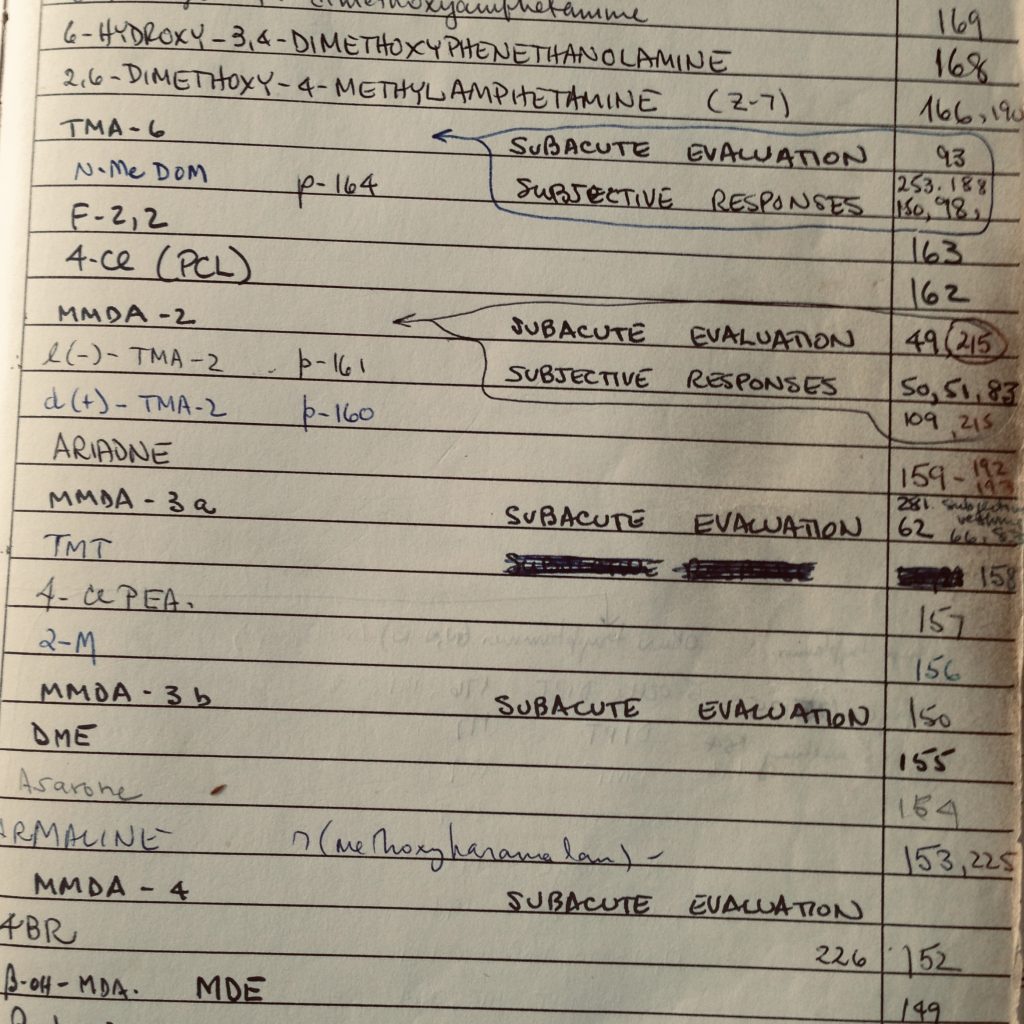 169
6-HYDROXY-3,4-DIMETHOXYPHENETHANOLAMINE 168
2,6-DIMETHOXY-4-METHYLAMPHETAMINE (Z-7) 166, 190
TMA-6 SUBACUTE EVALUATION 93
N-Me DOM p-164 SUBJECTIVE RESPONSES 253. 188
150, 98,
F-2,2 163
4-Cl (PCL) 162
MMDA-2 SUBACUTE EVALUATION 49 215
l(-)-TMA-2 p-161 SUBJECTIVE RESPONSES 50, 51, 83
d(+)-TMA-2 p-160 109, 215
ARIADNE 159- 192
193
MMDA-3a SUBACUTE EVALUATION 281.
62
TMT 158
4-Cl PEA. 157
2-M 156
MMDA-3b SUBACUTE EVALUATION 150
DME 155
Asarone 154
ARMALINE 153, 225
MMDA-4 SUBACUTE EVALUATION
4BR 226 152
β-OH-MDA. MDE 149